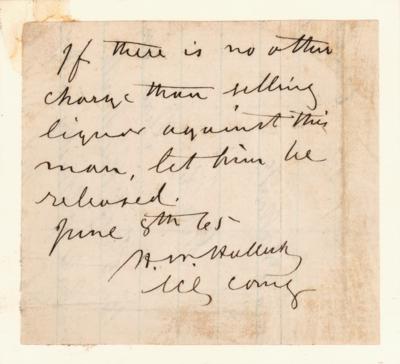 If there is no other
charge than selling
liquor against this
man, let him be
released.
June 8th 65
H.W. Halleck
Comg